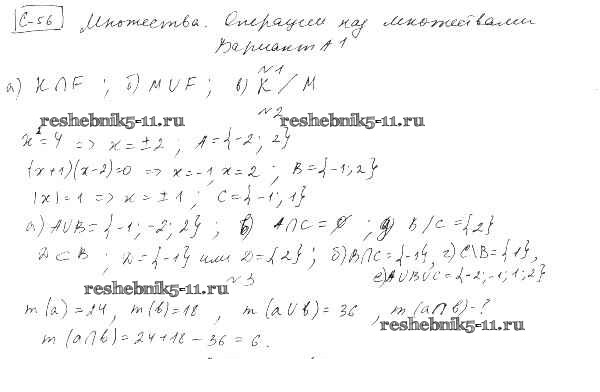 С-56 Множества. Операции над множествами
Вариант А1
№1
а) K∩F ; б) M∪F ; в) K / M
№2
reshebnik5-11.ru reshebnik5-11.ru
x²=4 => x = ±2 ; A={-2; 2}
(x+1)(x-2)=0 => x=-1, x=2 ; B={-1; 2}
|x|=1 => x = ±1 ; C={-1; 1}
а) A∪B={-1; -2; 2} ; в) A∩C = ∅ ; д) B/C = {2}
D⊂B ; D={-1} или D={2} ; б) B∩C={-1}, г) C\B={1},
е) A∪B∪C={-2; -1; 1; 2}
reshebnik5-11.ru №3
m(a)=24, m(b)=18 , m(a∪b)=36 , m(a∩b)-?
reshebnik5-11.ru
m(a∩b)=24+18-36=6.